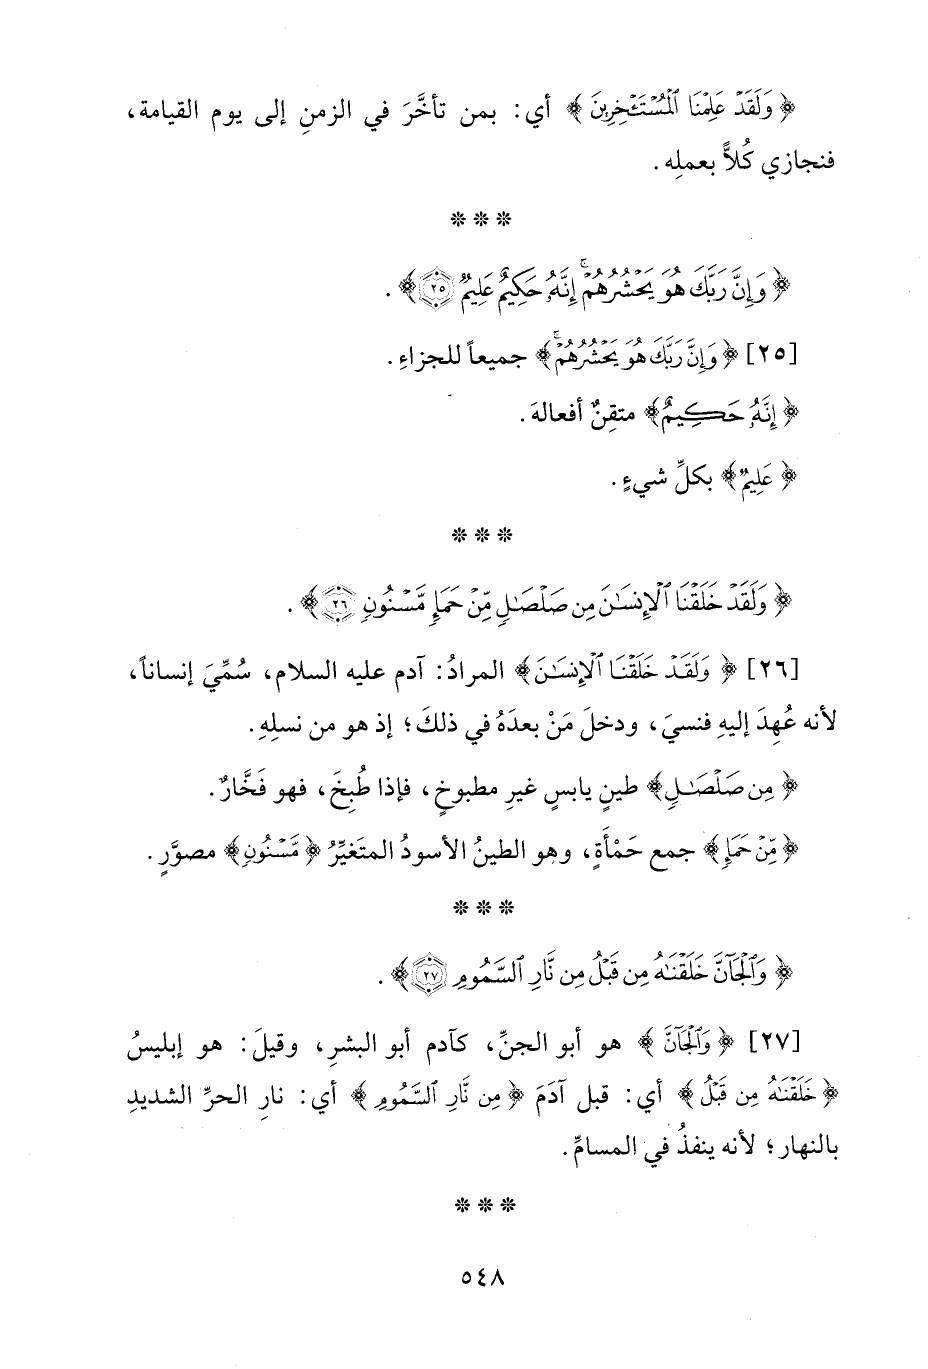 ﴿ وَلَقَدْ عَلِمْنَا ٱلْمُسْتَـْٔخِرِينَ ﴾ أي: بمن تأخَّرَ في الزمنِ إلى يوم القيامة،
فنجازي كُلاًّ بعملِه.
* * *
﴿ وَإِنَّ رَبَّكَ هُوَ يَحْشُرُهُمْ ۚ إِنَّهُۥ حَكِيمٌ عَلِيمٌ ٢٥ ﴾ .
[٢٥] ﴿ وَإِنَّ رَبَّكَ هُوَ يَحْشُرُهُمْ ۚ ﴾ جميعاً للجزاءِ .
﴿ إِنَّهُۥ حَكِيمٌ ﴾ متقِنٌ أفعالهَ .
﴿ عَلِيمٌ ﴾ بكلِّ شيءٍ .
* * *
﴿ وَلَقَدْ خَلَقْنَا ٱلْإِنسَـٰنَ مِن صَلْصَـٰلٍ مِّنْ حَمَإٍ مَّسْنُونٍ ٢٦ ﴾ .
[٢٦] ﴿ وَلَقَدْ خَلَقْنَا ٱلْإِنسَـٰنَ ﴾ المرادُ: آدم عليه السلام، سُمِّيَ إنساناً،
لأنه عُهِدَ إليهِ فنسيَ، ودخلَ مَنْ بعدَهُ في ذلكَ؛ إذ هو من نسلِهِ.
﴿ مِن صَلْصَـٰلٍ ﴾ طينٍ يابسٍ غيرِ مطبوخٍ، فإذا طُبِخَ، فهو فَخَّارٌ.
﴿ مِّنْ حَمَإٍ ﴾ جمع حَمْأَةٍ، وهو الطينُ الأسودُ المتَغيِّرُ ﴿ مَّسْنُونٍ ﴾ مصوَّرٍ .
* * *
﴿ وَٱلْجَآنَّ خَلَقْنَـٰهُ مِن قَبْلُ مِن نَّارِ ٱلسَّمُومِ ٢٧ ﴾ .
[٢٧] ﴿ وَٱلْجَآنَّ ﴾ هو أبو الجنِّ، كآدم أبو البشرِ، وقيلَ: هو إبليسُ
﴿ خَلَقْنَـٰهُ مِن قَبْلُ ﴾ أي: قبل آدَمَ ﴿ مِن نَّارِ ٱلسَّمُومِ ﴾ أي: نارِ الحرِّ الشديدِ
بالنهار؛ لأنه ينفذُ في المسامِّ.
* * *
٥٤٨